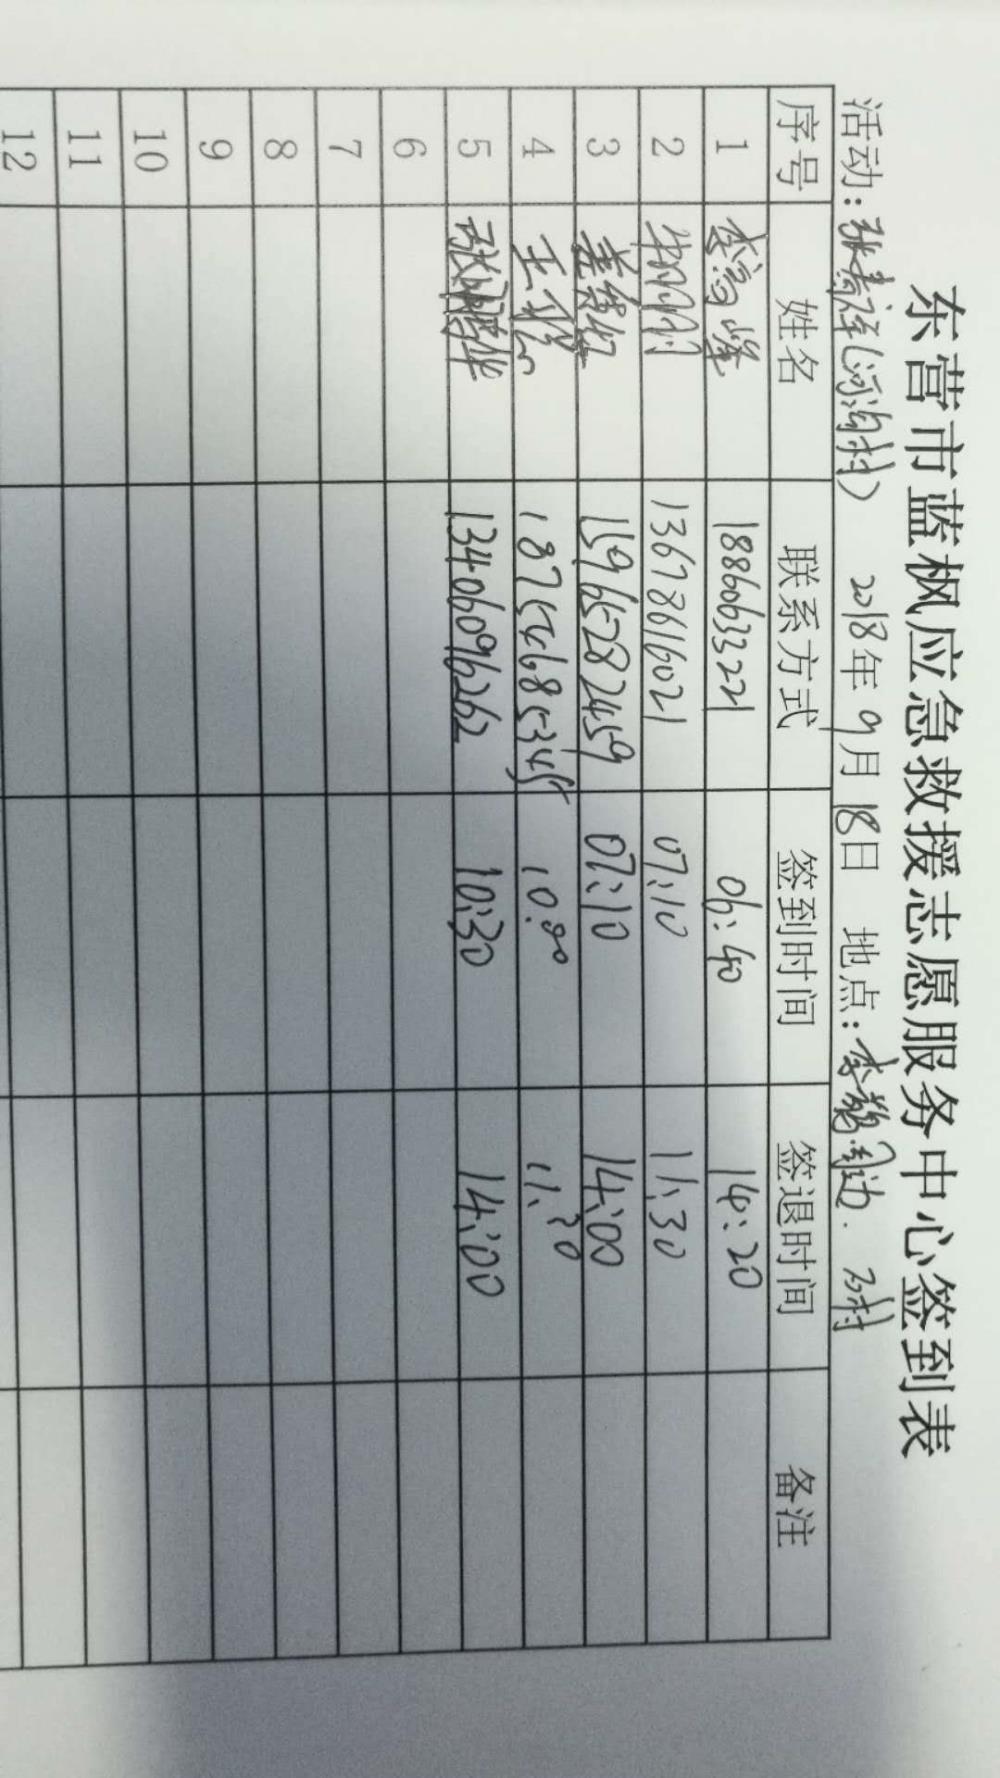 东营市蓝枫应急救援志愿服务中心签到表
活动: 2018年9月18日 地点:
序号 姓名 联系方式 签到时间 签退时间 备注
1 李高峰 18860633221 06:40 14:20
2 13678616021 07:10 11:30
3 15965282459 07:10 14:00
4 王 10:00 11:30
5 张 13406096262 10:30 14:00
6
7
8
9
10
11
12